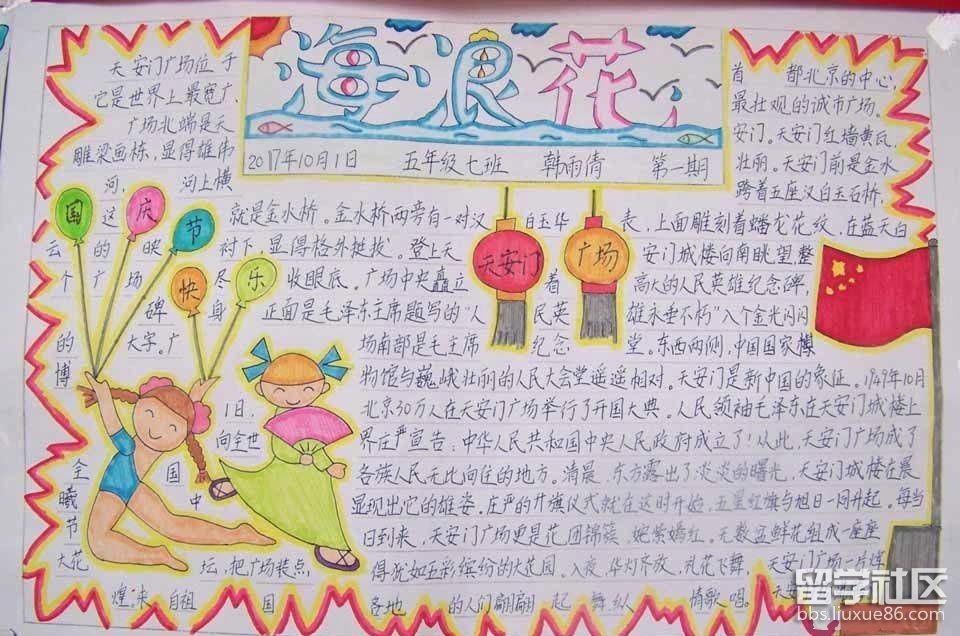 海浪花
2017年10月1日 五年级七班 韩雨倩 第一期
天安门广场位于首都北京的中心,
它是世界上最宽广、最壮观的诚市广场。
广场北端是天安门。天安门红墙黄瓦,
雕梁画栋,显得雄伟壮丽。天安门前是金水
河,河上横跨着五座汉白玉石桥,
国庆节快乐
天安门广场
这就是金水桥。金水桥两旁有一对汉白玉华表,上面雕刻着蟠龙花纹,在蓝天白
云的映衬下,显得格外挺拔。登上天安门城楼向南眺望,整
个广场尽收眼底。广场中央矗立着高大的人民英雄纪念碑,
碑身正面是毛泽东主席题写的“人民英雄永垂不朽”八个金光闪闪
的大字。广场南部是毛主席纪念堂。东西两侧,中国国家博
博物馆与巍峨壮丽的人民大会堂遥遥相对。天安门是新中国的象征。1949年10月
1日,北京30万人在天安门广场举行了开国大典。人民领袖毛泽东在天安门城楼上
向全世界庄严宣告:中华人民共和国中央人民政府成立了!从此,天安门广场成了
全国各族人民无比向往的地方。清晨,东方露出了淡淡的曙光,天安门城楼在晨
曦中显现出它的雄姿,庄严的升旗仪式就在这时开始,五星红旗与旭日一同升起。每当
节日到来,天安门广场更是花团锦簇,姹紫嫣红。无数盆鲜花组成一座座
大花坛,把广场装点得犹如五彩缤纷的大花园。入夜,华灯齐放,礼花飞舞,天安门广场一片辉
煌。来自祖国各地的人们翩翩起舞,纵情歌唱。天安
留学社区
bbs.liuxue86.com